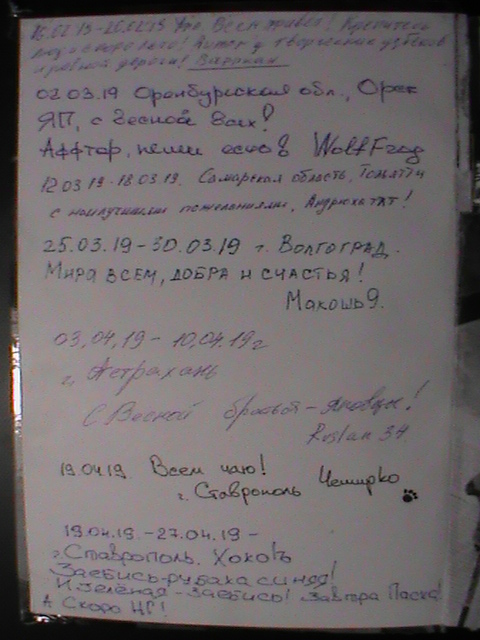 16.02.19-26.02.19 Уфа. Всем привет! Крепитесь
люди скоро лето! Хитов и творческих успехов
и ровной дороги!
02.03.19 Оренбургская обл., Орск
ЯП, с весной Всех!
Аффтар, пеши есчо 8 WolfFrag
12.03.19-18.03.19. Самарская область, Тольятти
с наилучшими пожеланиями, АндрюхаТЛТ!
25.03.19-30.03.19 г. ВОЛГОГРАД.
МИРА ВСЕМ, ДОБРА И СЧАСТЬЯ!
Макошь9.
03.04.19- 10.04.19г
г. Астрахань
С Весной братья-Яповцы!
Ruslan 34.
19.04.19. Всем чаю!
г. Ставрополь
19.04.19.-27.04.19-
г. Ставрополь. ХохоЪ
Заебись-рубаха синяя!
И зелёная-Заебись! Завтра Пасха!
А Скоро НГ!